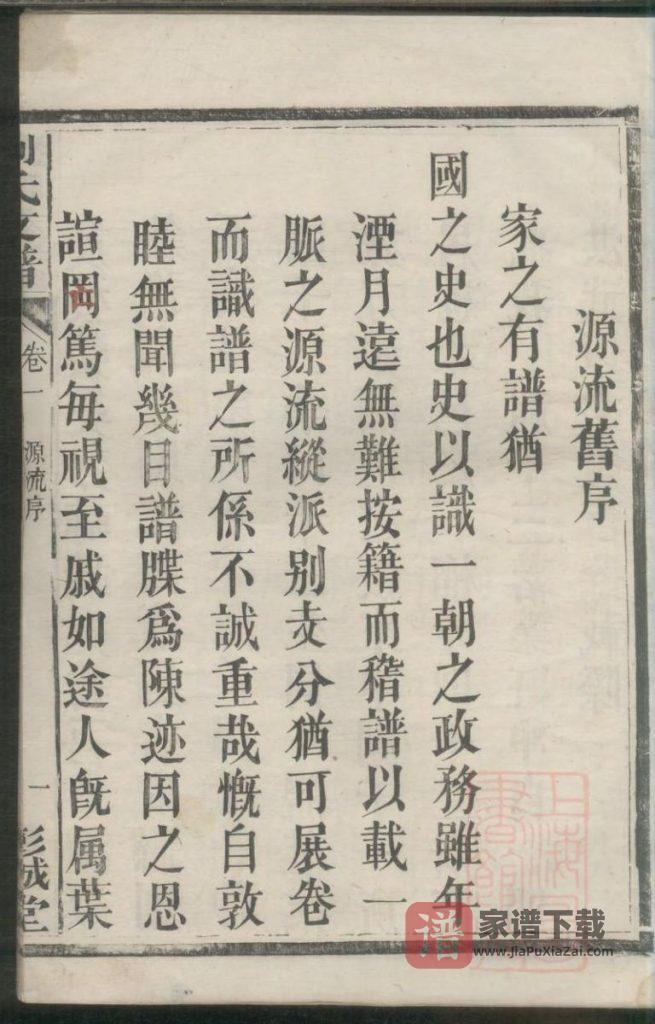 源流舊序
家之有譜猶
國之史也史以識一朝之政務雖年
湮月遠無難按籍而稽譜以載一
脈之源流縱派別支分猶可展卷
而識譜之所係不誠重哉慨自敦
睦無聞幾目譜牒爲陳迹因之恩
誼罔篤每視至戚如途人既属葉
劉氏支譜
卷一
源流序
一
彭城堂
上海圖書館
譜
家谱下载
www.JiaPuXiaZai.com